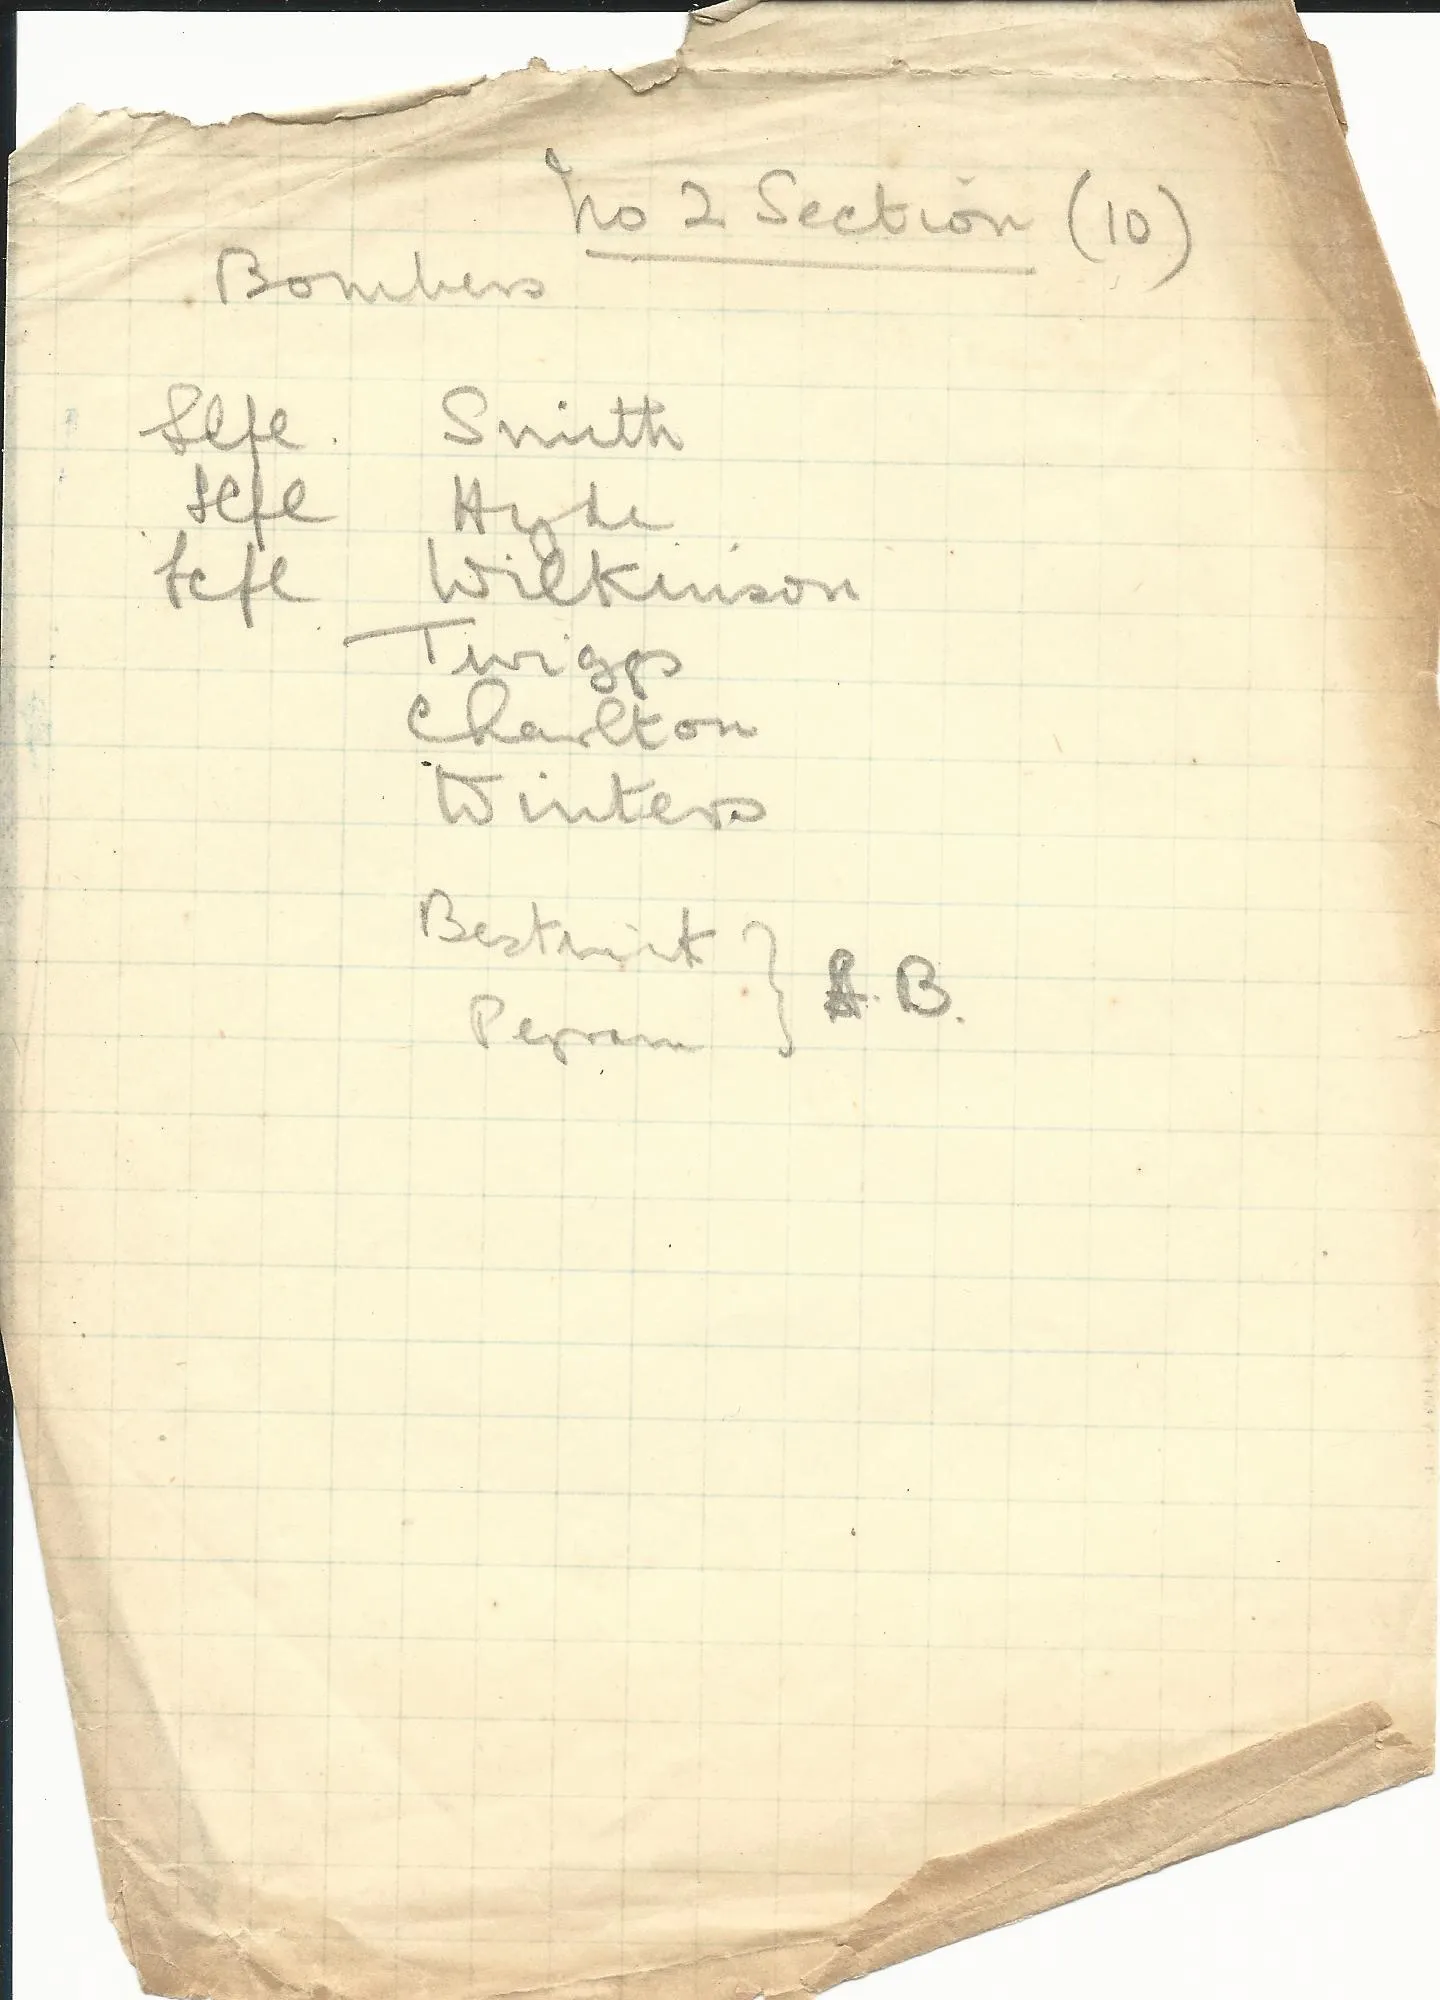 No 2 Section (10)
Bombers
Lcpl. Smith
Lcpl Hyde
Lcpl Wilkinson
Twiggs
Charlton
Winters
Bestwick } A. B.
Pegram